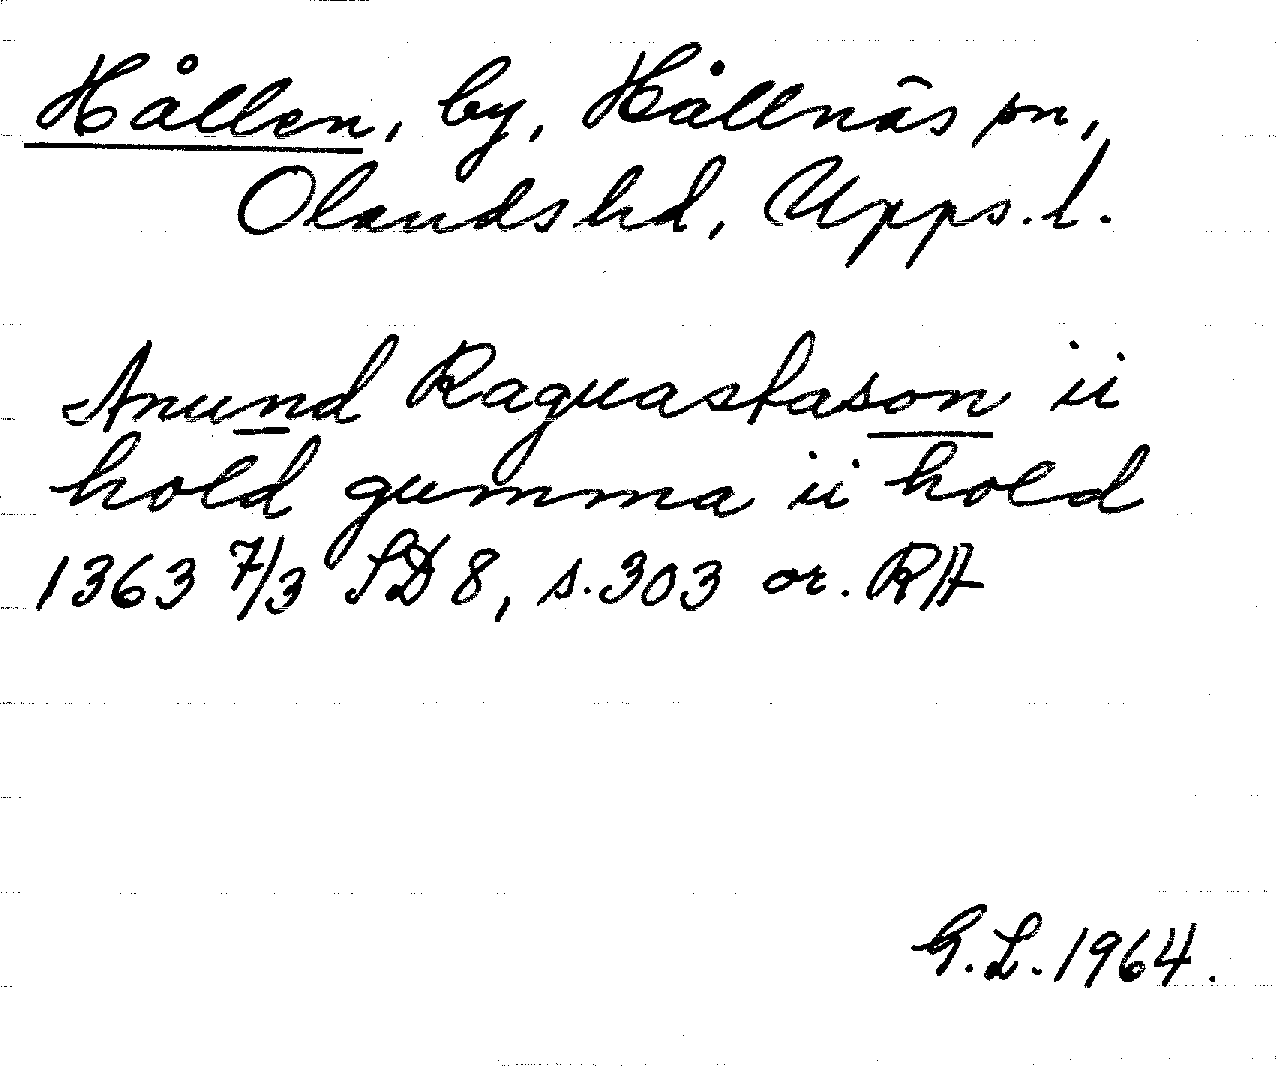 Hållen, by, Hållnäs sn,
Olands hd, Upps. l.
Anund Raguastason ii
hold gumma ii hold
1363 7/3 SD 8, s. 303 or. RA
G. L. 1964.